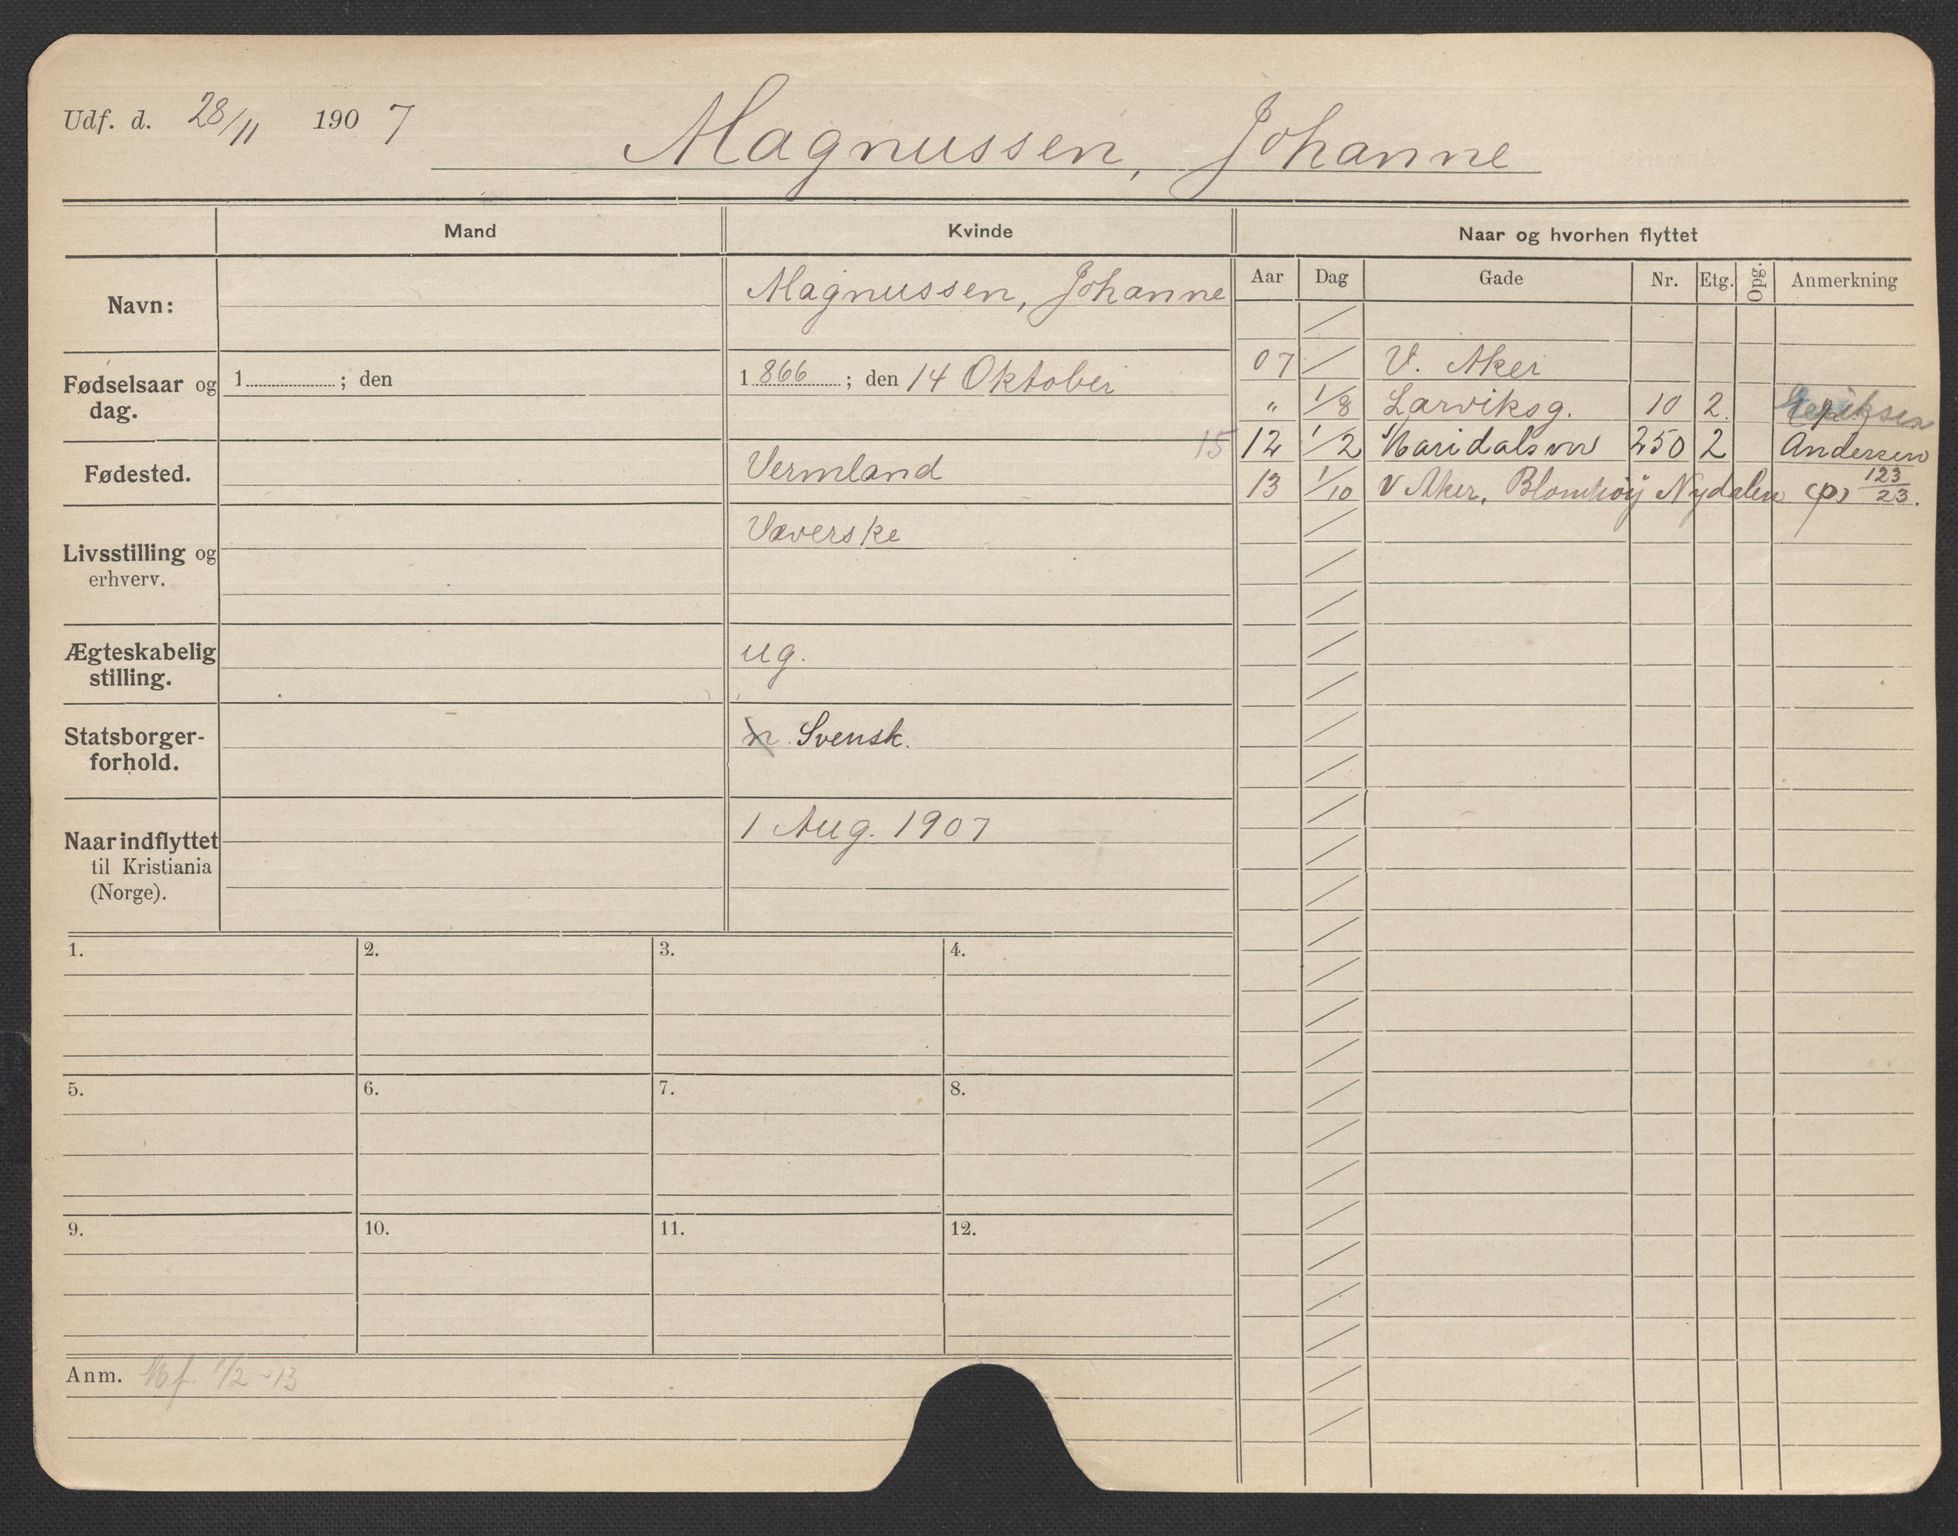 Udf. d. 28/11 1907
Magnussen, Johanne
Mand
Kvinde
Naar og hvorhen flyttet
Navn:
Magnussen, Johanne
Fødselsaar og dag.
1 ; den
1866 ; den 14 Oktober
Fødested.
Vermland
Livsstilling og erhverv.
Væverske
Ægteskabelig stilling.
ug.
Statsborgerforhold.
n. Svensk.
Naar indflyttet til Kristiania (Norge).
1 Aug. 1907
Aar Dag Gade Nr. Etg. Opg. Anmerkning
07 V. Aker
" 1/8 Larviksg. 10 2. Eriksen
15 12 1/2 Maridalsvn 250 2 Andersen
13 1/10 V Aker, Nydalen (p) 123/23.
1. 2. 3. 4.
5. 6. 7. 8.
9. 10. 11. 12.
Anm. 1/2-13